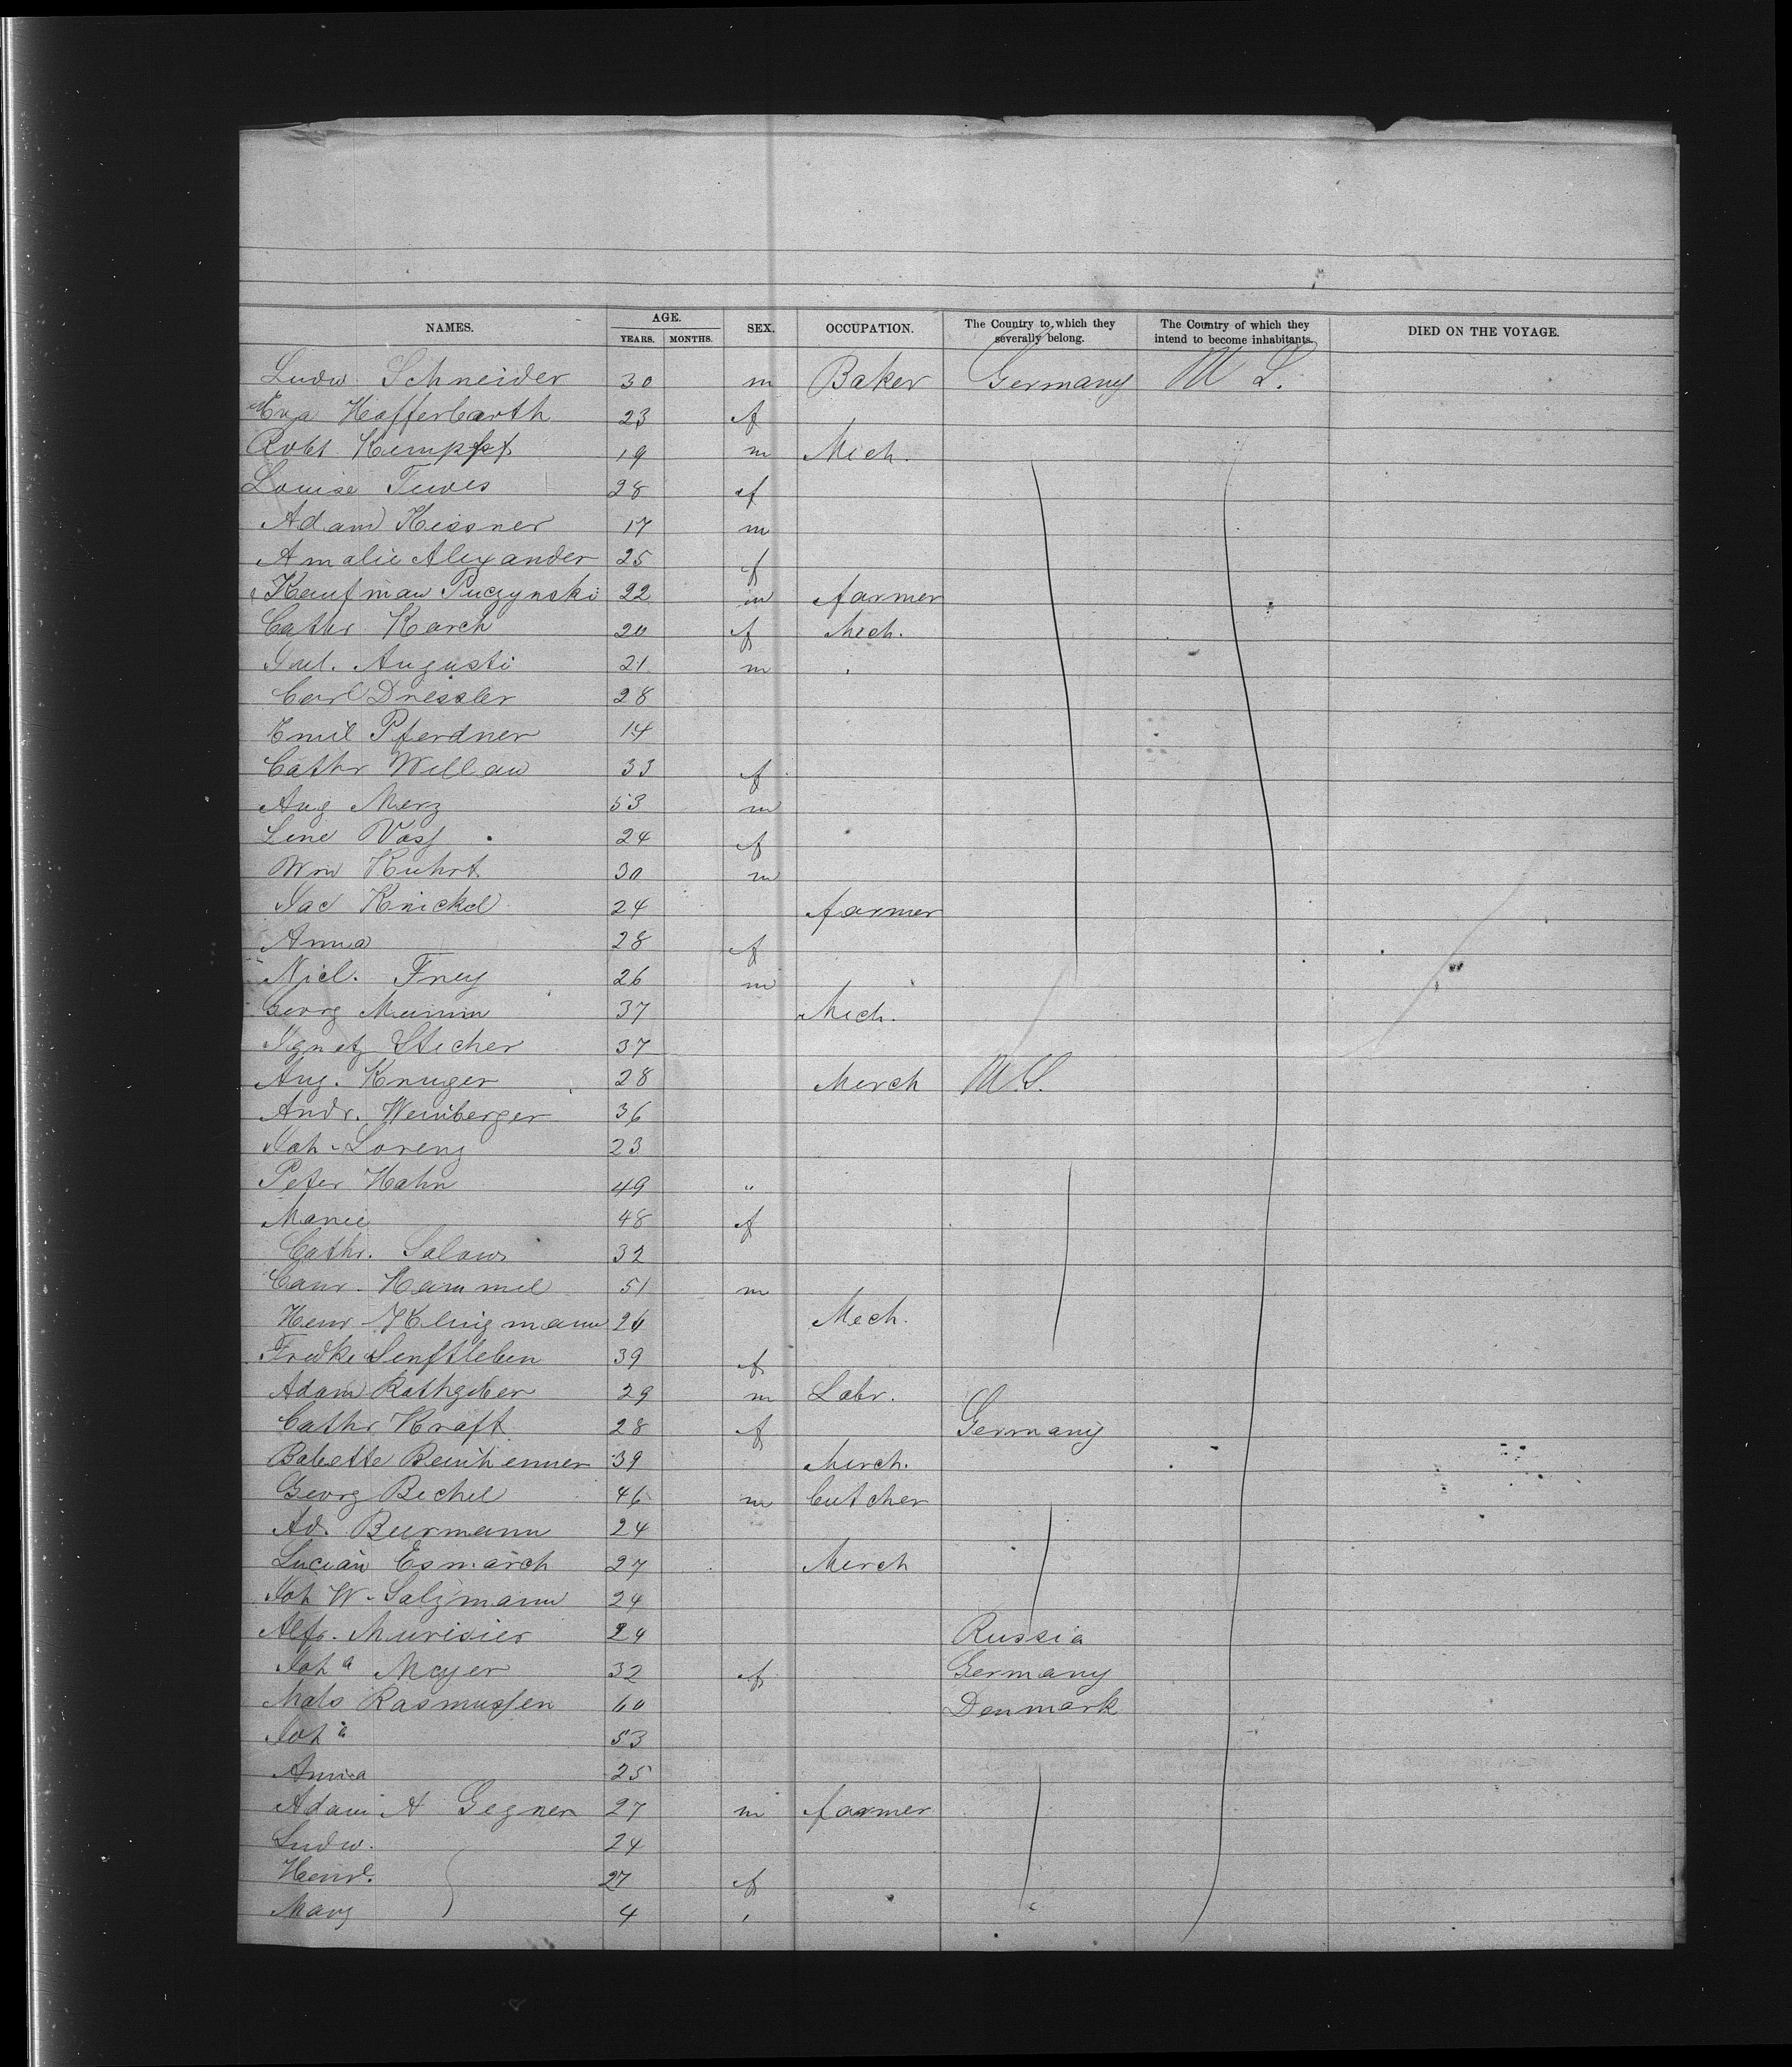 NAMES. AGE. SEX. OCCUPATION. The Country to which they severally belong. The Country of which they intend to become inhabitants. DIED ON THE VOYAGE.
YEARS. MONTHS.
Ludw. Schneider 30 m Baker Germany U S.
Eva Hafferbarth 23 f
Robt Kempff 19 m Mech.
Louise Tewes 28 f
Adam Kissner 17 m
Amalie Alexander 25 f
Kaufman Puczynski 22 m farmer
Cathr Karch 20 f Mech.
Jul. Augusti 21 m
Carl Dressler 28
Emil Pferdner 14
Cathr Willan 33 f
Aug Merz 53 m
Line Vass 24 f
Wm Kuhrt 30 m
Jac Knickel 24 farmer
Anna 28 f
Nicl. Frey 26 m
Georg Mumm 37 Mech.
Ignatz Stecher 37
Aug. Kruger 28 Merch U.S.
Andr. Weinberger 36
Joh Lorenz 23
Peter Hahn 49 "
Marie 48 f
Cathr. Salows 32
Conr. Hammel 51 m
Henr Klingmann 24 Mech.
Fredke Senftleben 39 f
Adam Rathgeber 29 m Labr.
Cathr Kraft 28 f Germany
Babette 39 Merch.
Georg Bechel 46 m Butcher
Ad. Burmann 24
Lucian Esmarch 27 Merch
Joh W. Salzmann 24
Alfr. Murisier 24 Russia
Joh a Meyer 32 f Germany
Mats Rasmussen 60 Denmark
Joh a 53
Anna 25
Adam A Gegner 27 m farmer
Ludw. 24
Henr. 27 f
Marg 4